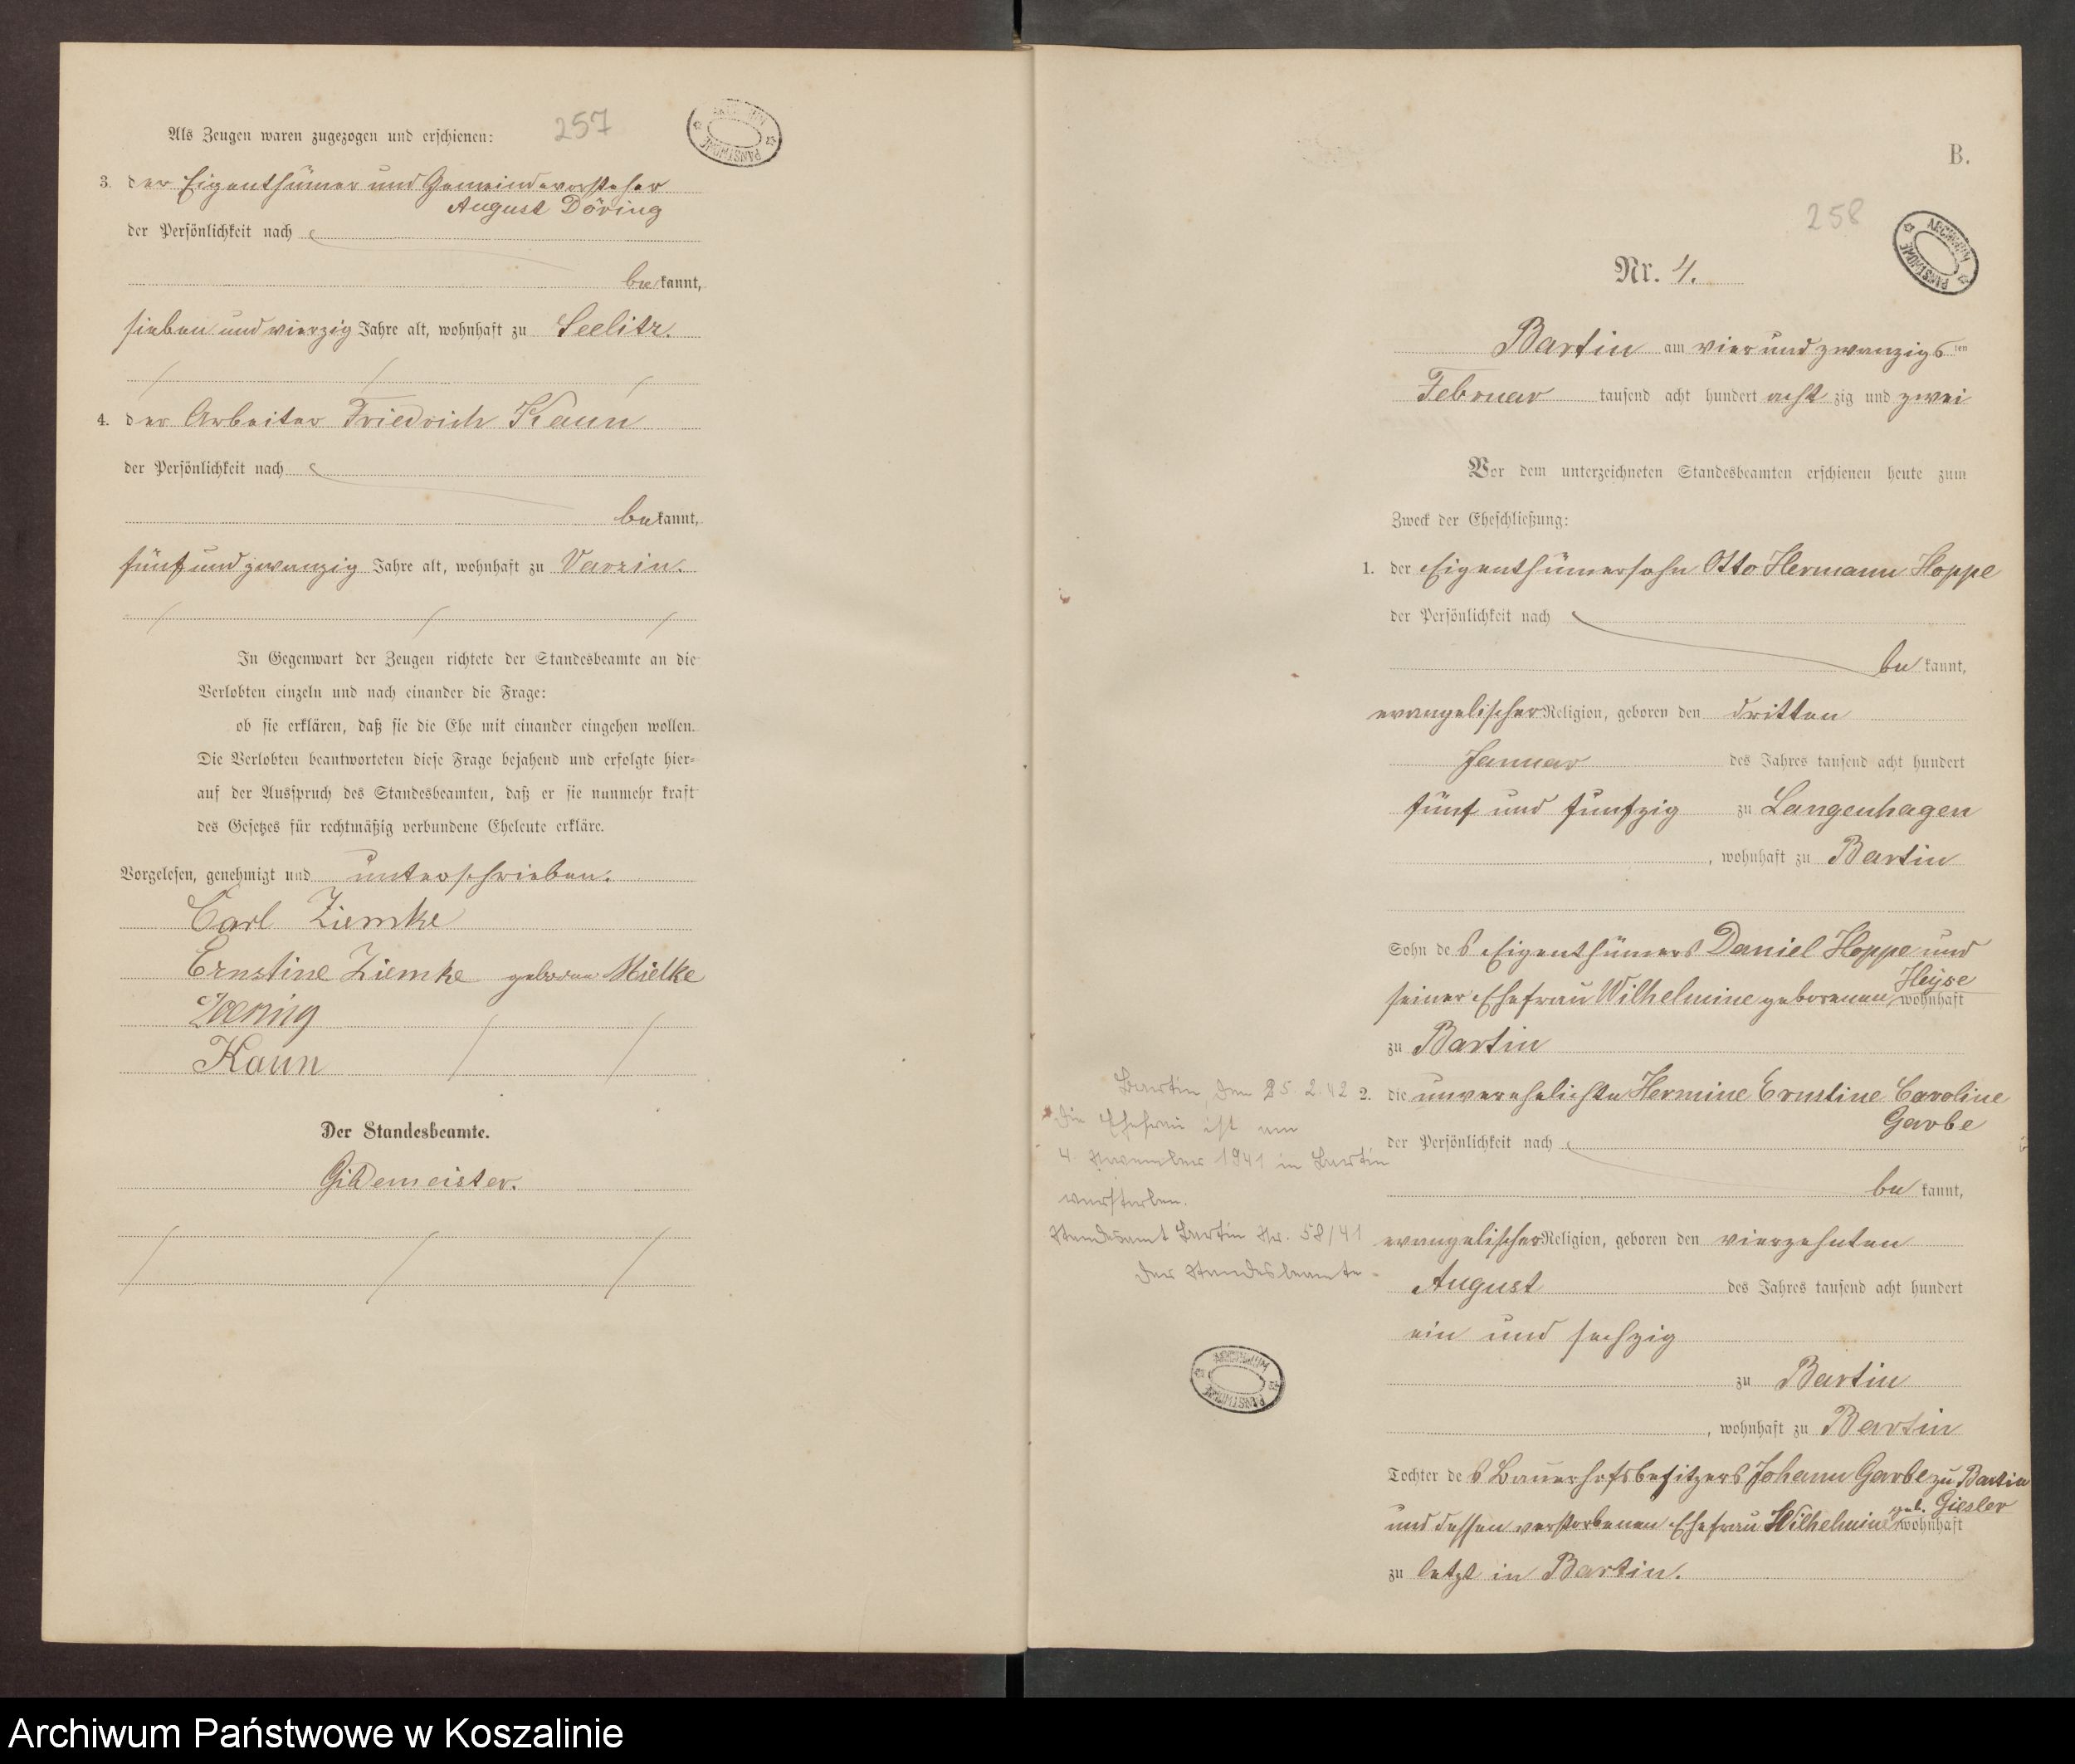 257
ARCHIWUM PAŃSTWOWE
Als Zeugen waren zugezogen und erschienen:
3. der Eigenthümer und Gemeindevorsteher
August Döring
der Persönlichkeit nach
bekannt,
sieben und vierzig Jahre alt, wohnhaft zu Seelitz.
4. der Arbeiter Friedrich Kaun
der Persönlichkeit nach
bekannt,
fünf und zwanzig Jahre alt, wohnhaft zu Varzin.
In Gegenwart der Zeugen richtete der Standesbeamte an die
Verlobten einzeln und nach einander die Frage:
ob sie erklären, daß sie die Ehe mit einander eingehen wollen.
Die Verlobten beantworteten diese Frage bejahend und erfolgte hier-
auf der Ausspruch des Standesbeamten, daß er sie nunmehr kraft
des Gesetzes für rechtmäßig verbundene Eheleute erkläre.
Vorgelesen, genehmigt und unterschrieben.
Carl Ziemke
Ernstine Ziemke geborne Mielke
Doering
Kaun
Der Standesbeamte.
Gildemeister.
B.
258
ARCHIWUM PAŃSTWOWE
Nr. 4.
Bartin am vier und zwanzigsten
Februar tausend acht hundert achtzig und zwei
Vor dem unterzeichneten Standesbeamten erschienen heute zum
Zweck der Eheschließung:
1. der Eigenthümersohn Otto Hermann Hoppe
der Persönlichkeit nach
bekannt,
evangelischer Religion, geboren den dritten
Januar des Jahres tausend acht hundert
fünf und fünfzig zu Langenhagen
, wohnhaft zu Bartin
Sohn des Eigenthümers Daniel Hoppe und
seiner Ehefrau Wilhelmine geborenen Heyse wohnhaft
zu Bartin
2. die unverehelichte Hermine Ernstine Caroline
Garbe
der Persönlichkeit nach
bekannt,
evangelischer Religion, geboren den vierzehnten
August des Jahres tausend acht hundert
ein und sechzig
zu Bartin
, wohnhaft zu Bartin
Tochter des Bauerhofsbesitzers Johann Garbe zu Bartin
und dessen verstorbenen Ehefrau Wilhelmine geb. Giesler wohnhaft
zu letzt in Bartin.
Bartin, den 25. 2. 42
Die Ehefrau ist am
4. November 1941 in Bartin
verstorben.
Standesamt Bartin Nr. 58/41
Der Standesbeamte
ARCHIWUM PAŃSTWOWE
Archiwum Państwowe w Koszalinie